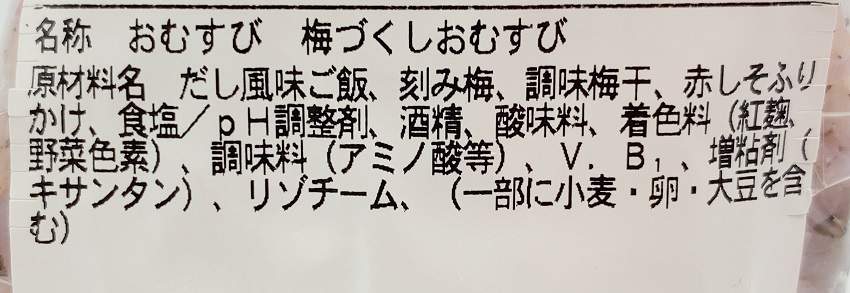 名称　おむすび　梅づくしおむすび
原材料名　だし風味ご飯、刻み梅、調味梅干、赤しそふり
かけ、食塩／ｐＨ調整剤、酒精、酸味料、着色料（紅麹、
野菜色素）、調味料（アミノ酸等）、Ｖ．Ｂ₁、増粘剤（
キサンタン）、リゾチーム、（一部に小麦・卵・大豆を含
む）